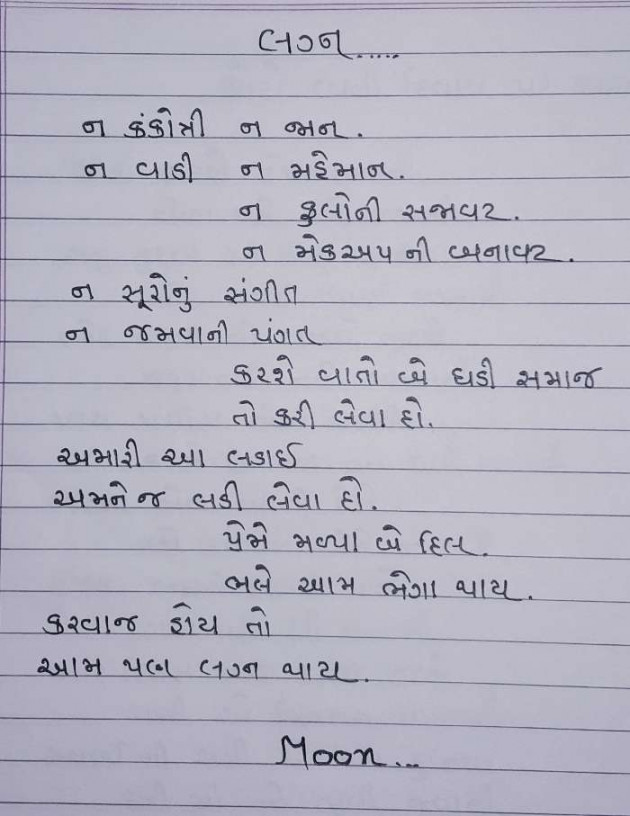 લગ્ન.....
ન કંકોત્રી ન જાન.
ન વાડી ન મહેમાન.
ન ફુલોની સજાવટ.
ન મેકઅપ ની બનાવટ.
ન સૂરોનું સંગીત
ન જમવાની પંગત
કરશે વાતો બે ઘડી સમાજ
તો કરી લેવા દો.
અમારી આ લડાઈ
અમને જ લડી લેવા દો.
પ્રેમે મળ્યા બે દિલ.
ભલે આમ ભેગા થાય.
કરવાજ હોય તો
આમ પણ લગ્ન થાય.
Moon...